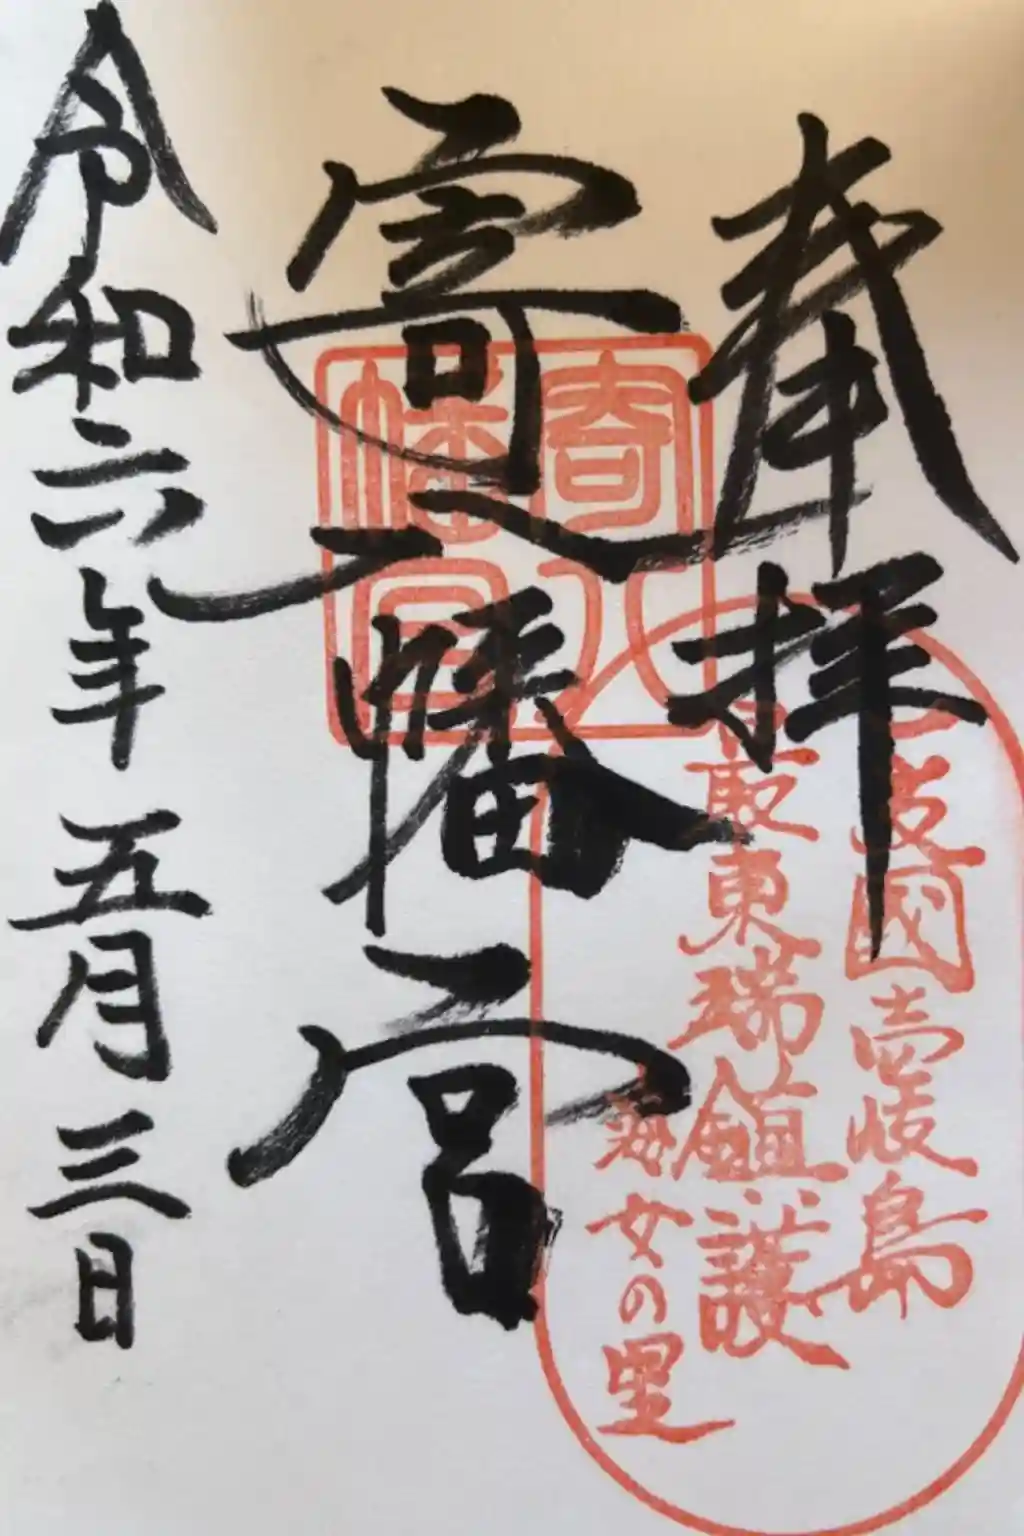 奉拝
寄八幡宮
令和六年五月三日
寄八
幡宮
支國壱岐島
最東端鎮護
海女の里